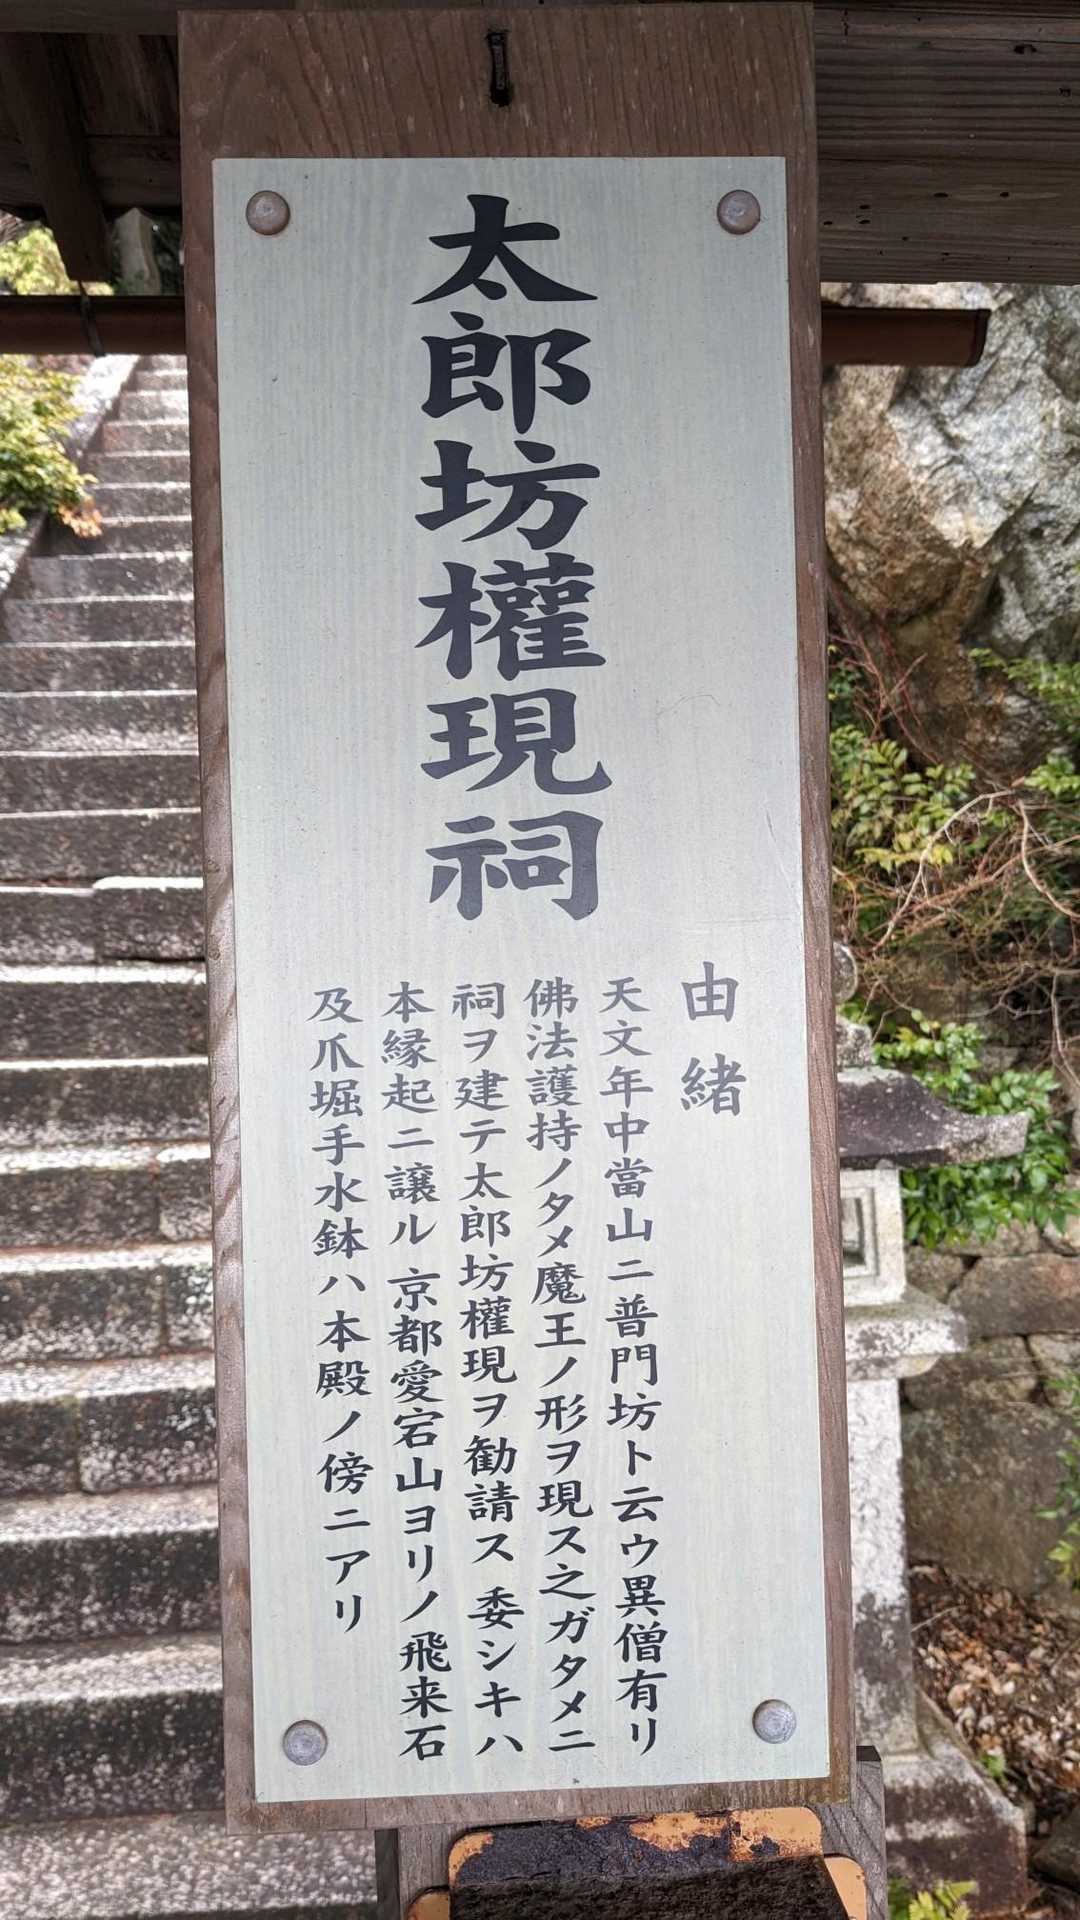 太郎坊權現祠
由緒
天文年中當山ニ普門坊ト云ウ異僧有リ
佛法護持ノタメ魔王ノ形ヲ現ス之ガタメニ
祠ヲ建テ太郎坊權現ヲ勧請ス 委シキハ
本縁起ニ譲ル 京都愛宕山ヨリノ飛来石
及爪堀手水鉢ハ本殿ノ傍ニアリ